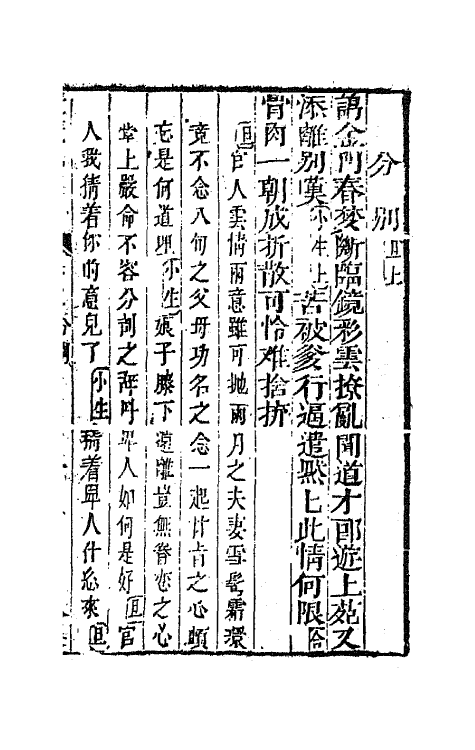 分別 旦上
謁金門春夢斷臨鏡彩雲撩亂聞道才郎遊上苑又
添離別嘆 小生上 苦被爹行逼遣默上此情何限 合
骨肉一朝成折散可怜难捨拚
旦 官人雲情雨意雖可抛兩月之夫妻雪鬓霜環
竟不念八旬之父母功名之念一起甘旨之心頓
忘是何道理 小生 娘子膝下遠離豈無眷恋之心
堂上嚴命不容分剖之辞吽 卑人如何是好 旦 官
人我猜着你的意兒了 小生 猜着卑人什怎來 旦